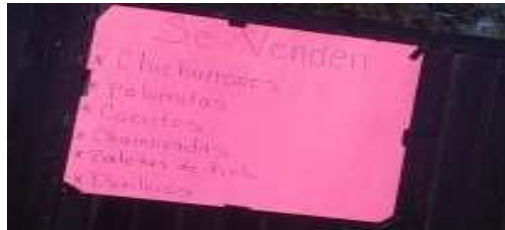 Se Venden
* Chicharrones
* palomitas
* Cueritos
* Chamoyadas
* Paletas de